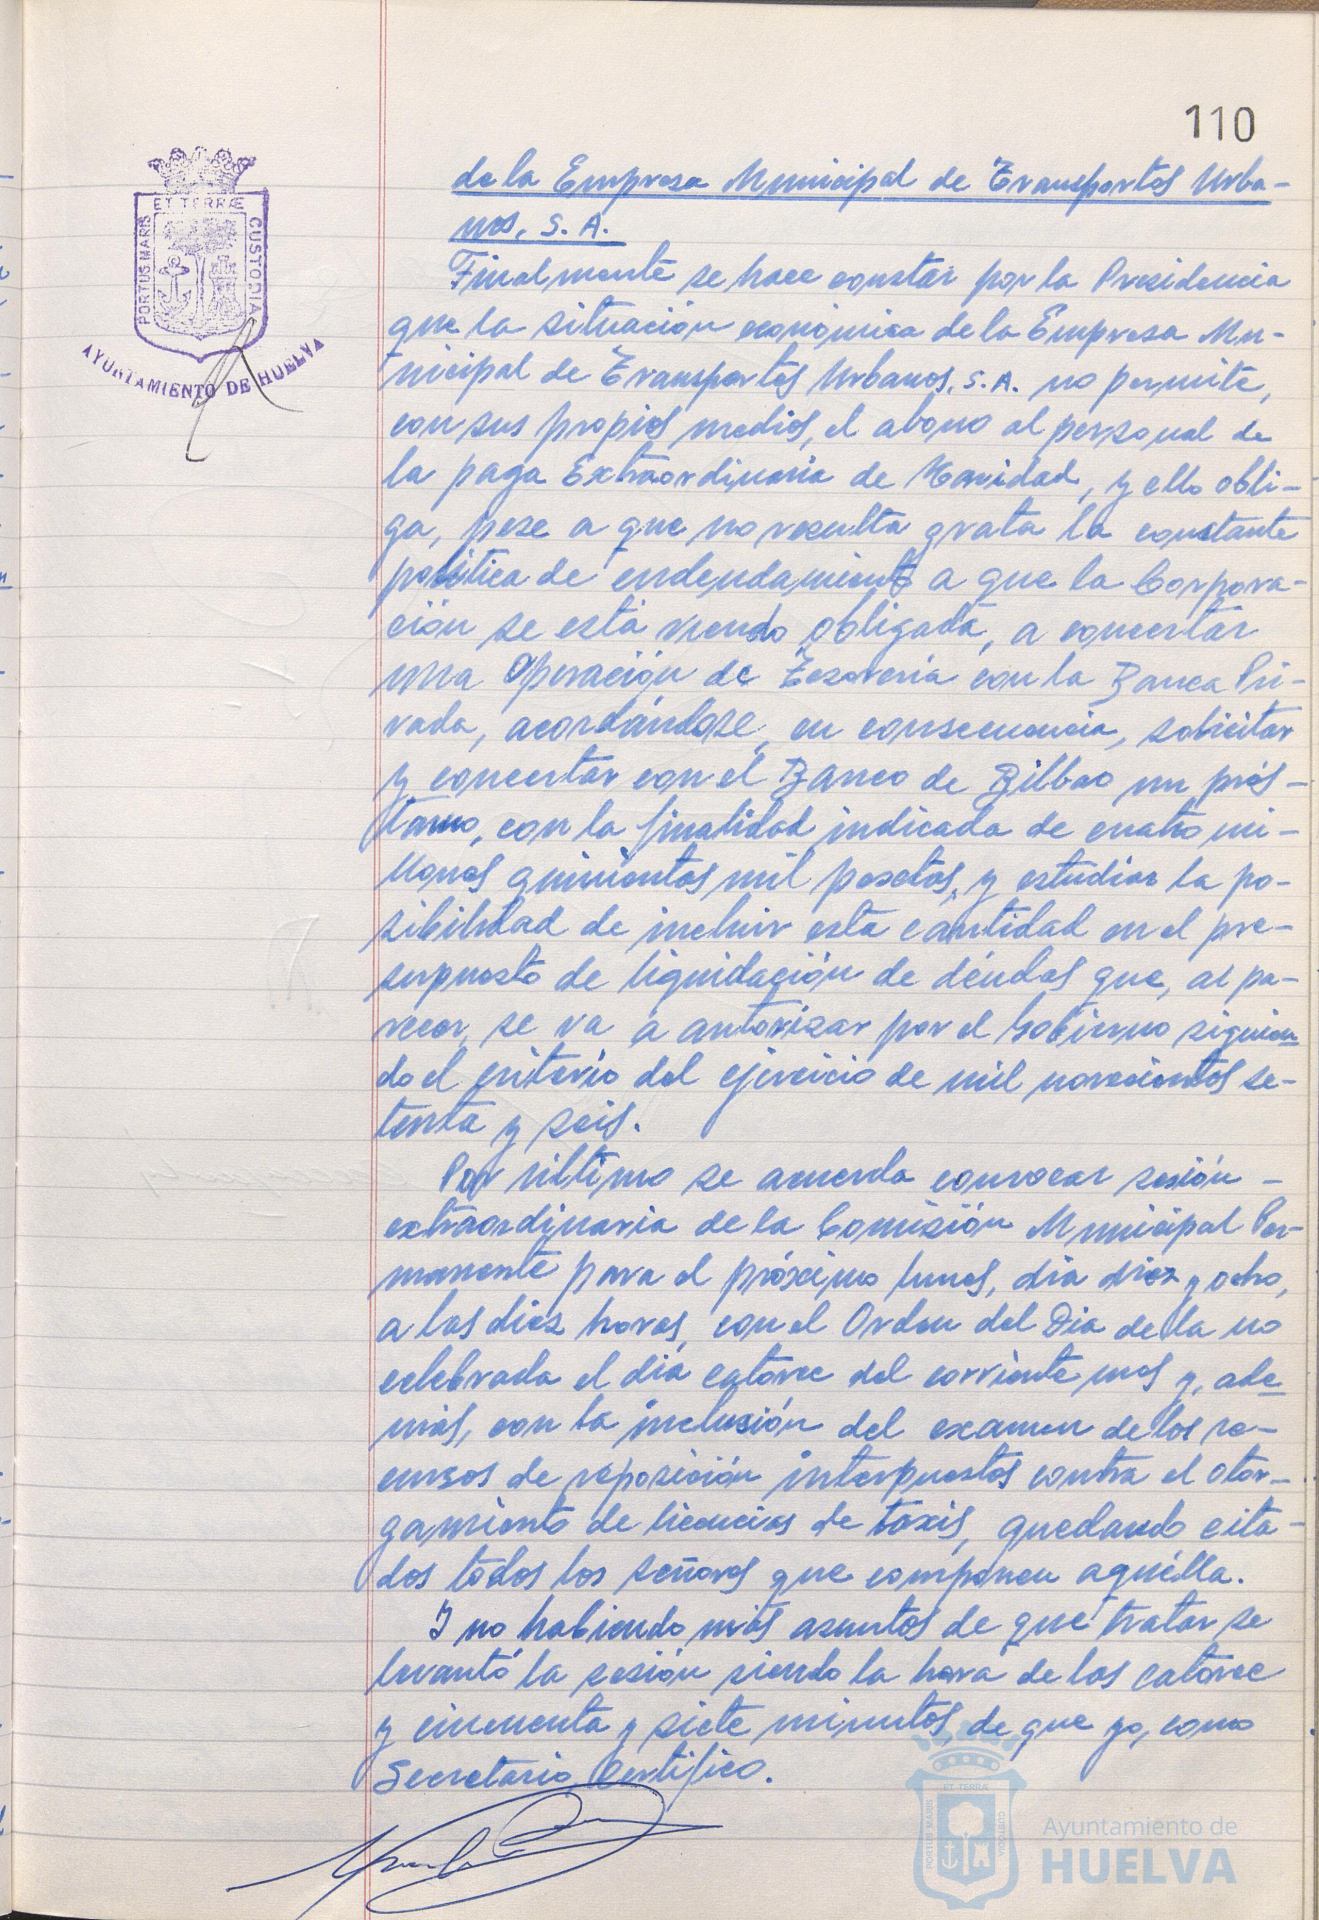 110
de la Empresa Municipal de Transportes Urba-
nos, S. A.
Finalmente se hace constar por la Presidencia
que la situación económica de la Empresa Mu-
nicipal de Transportes Urbanos, S. A. no permite,
con sus propios medios, el abono al personal de
la paga Extraordinaria de Navidad, y ello obli-
ga, pese a que no resulta grata la constante
política de endeudamiento a que la Corpora-
ción se está viendo obligada, a concertar
una Operación de Tesorería con la Banca Pri-
vada, acordándose, en consecuencia, solicitar
y concertar con el Banco de Bilbao un prés-
tamo, con la finalidad indicada de cuatro mi-
llones quinientas mil pesetas, y estudiar la po-
sibilidad de incluir esta cantidad en el pre-
supuesto de liquidación de deudas que, al pa-
recer, se va a autorizar por el Gobierno siguien
do el criterio del ejercicio de mil novecientos se-
tenta y seis.
Por último se acuerda convocar sesión -
extraordinaria de la Comisión Municipal Per-
manente para el próximo lunes, día diez y ocho,
a las diez horas, con el Orden del Dia de la no
celebrada el día catorce del corriente mes y, ade
más, con la inclusión del examen de los re-
cursos de reposición interpuestos contra el otor-
gamiento de licencias de taxis, quedando cita-
dos todos los señores que componen aquélla.
Y no habiendo más asuntos de que tratar se
levantó la sesión siendo la hora de las catorce
y cincuenta y siete minutos, de que yo, como
Secretario Certifico.
ET TERRÆ
PORTUS MARIS
CUSTODIA
AYUNTAMIENTO DE HUELVA
ET TERRÆ
PORTUS MARIS
CUSTODIA
Ayuntamiento de
HUELVA